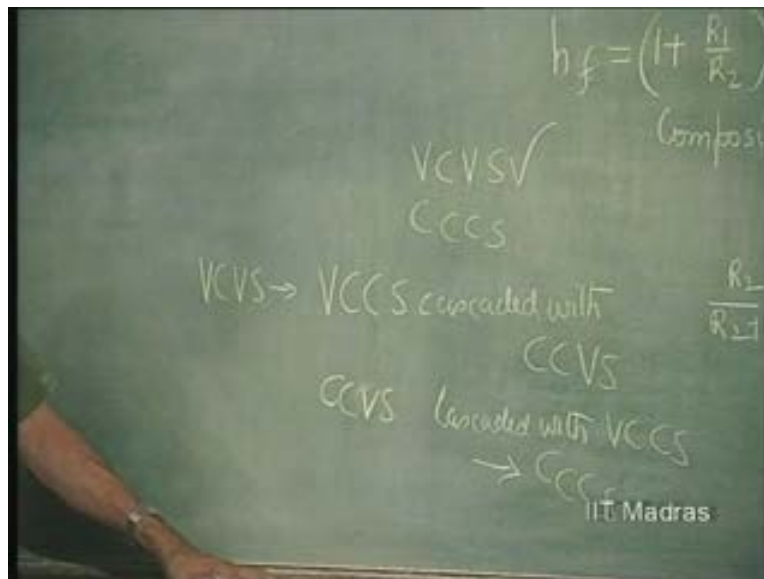 hf = (1 + R1/R2)
Compos
VCVS✓
CCCS
VCVS → VCCS cascaded with
CCVS
CCVS Cascaded with VCCS
→ CCCS
R2
IIT Madras